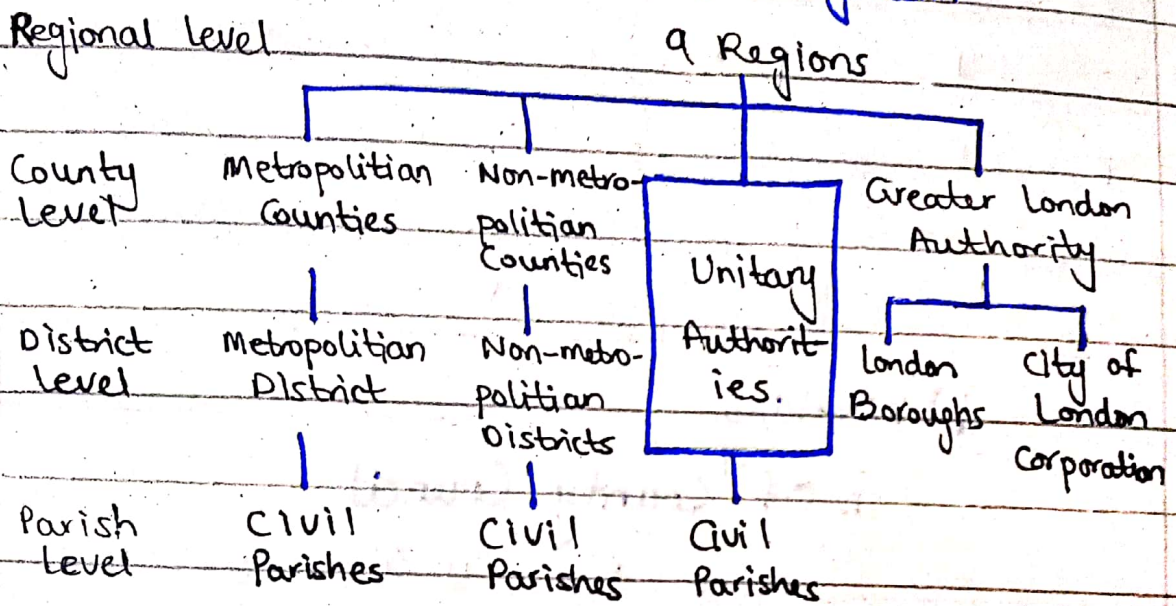 Regional level
9 Regions
County
Level
Metropolitian
Counties
Non-metro-
politian
Counties
Unitary
Authorit-
ies.
Greater London
Authority
District
level
Metropolitian
District
Non-metro-
politian
Districts
London
Boroughs
City of
London
Corporation
Parish
Level
Civil
Parishes
Civil
Parishes
Civil
Parishes